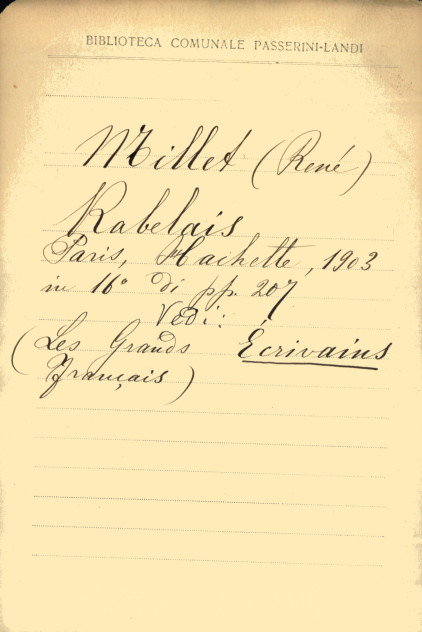 BIBLIOTECA COMUNALE PASSERINI-LANDI
Millet (René)
Rabelais
Paris, Hachette, 1903
in 16° di pp. 207
Vedi:
(Les Grands Écrivains
Français)